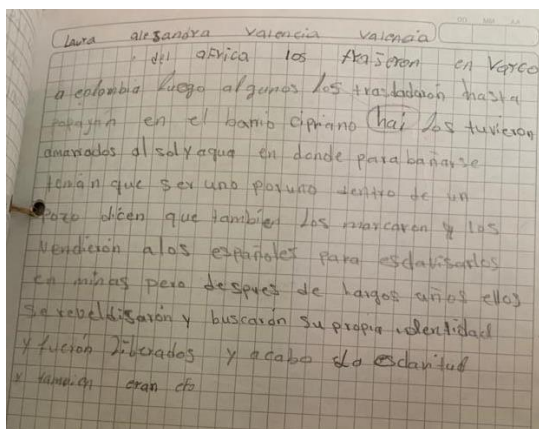 Laura alesandra valencia valencia
del africa los trajeron en varco
a colombia luego algunos los trasladarón hasta
popayan en el barrio cipriano hai los tuvieron
amarrados al sol y agua en donde para bañarse
tenian que ser uno por uno dentro de un
pozo dicen que tambien los marcaron y los
vendieron a los españoles para esclavisarlos
en minas pero despues de largos años ellos
se rebeldisarón y buscarón su propia identidad
y fueron liberados y acabo la esclavitud
y tambien eran